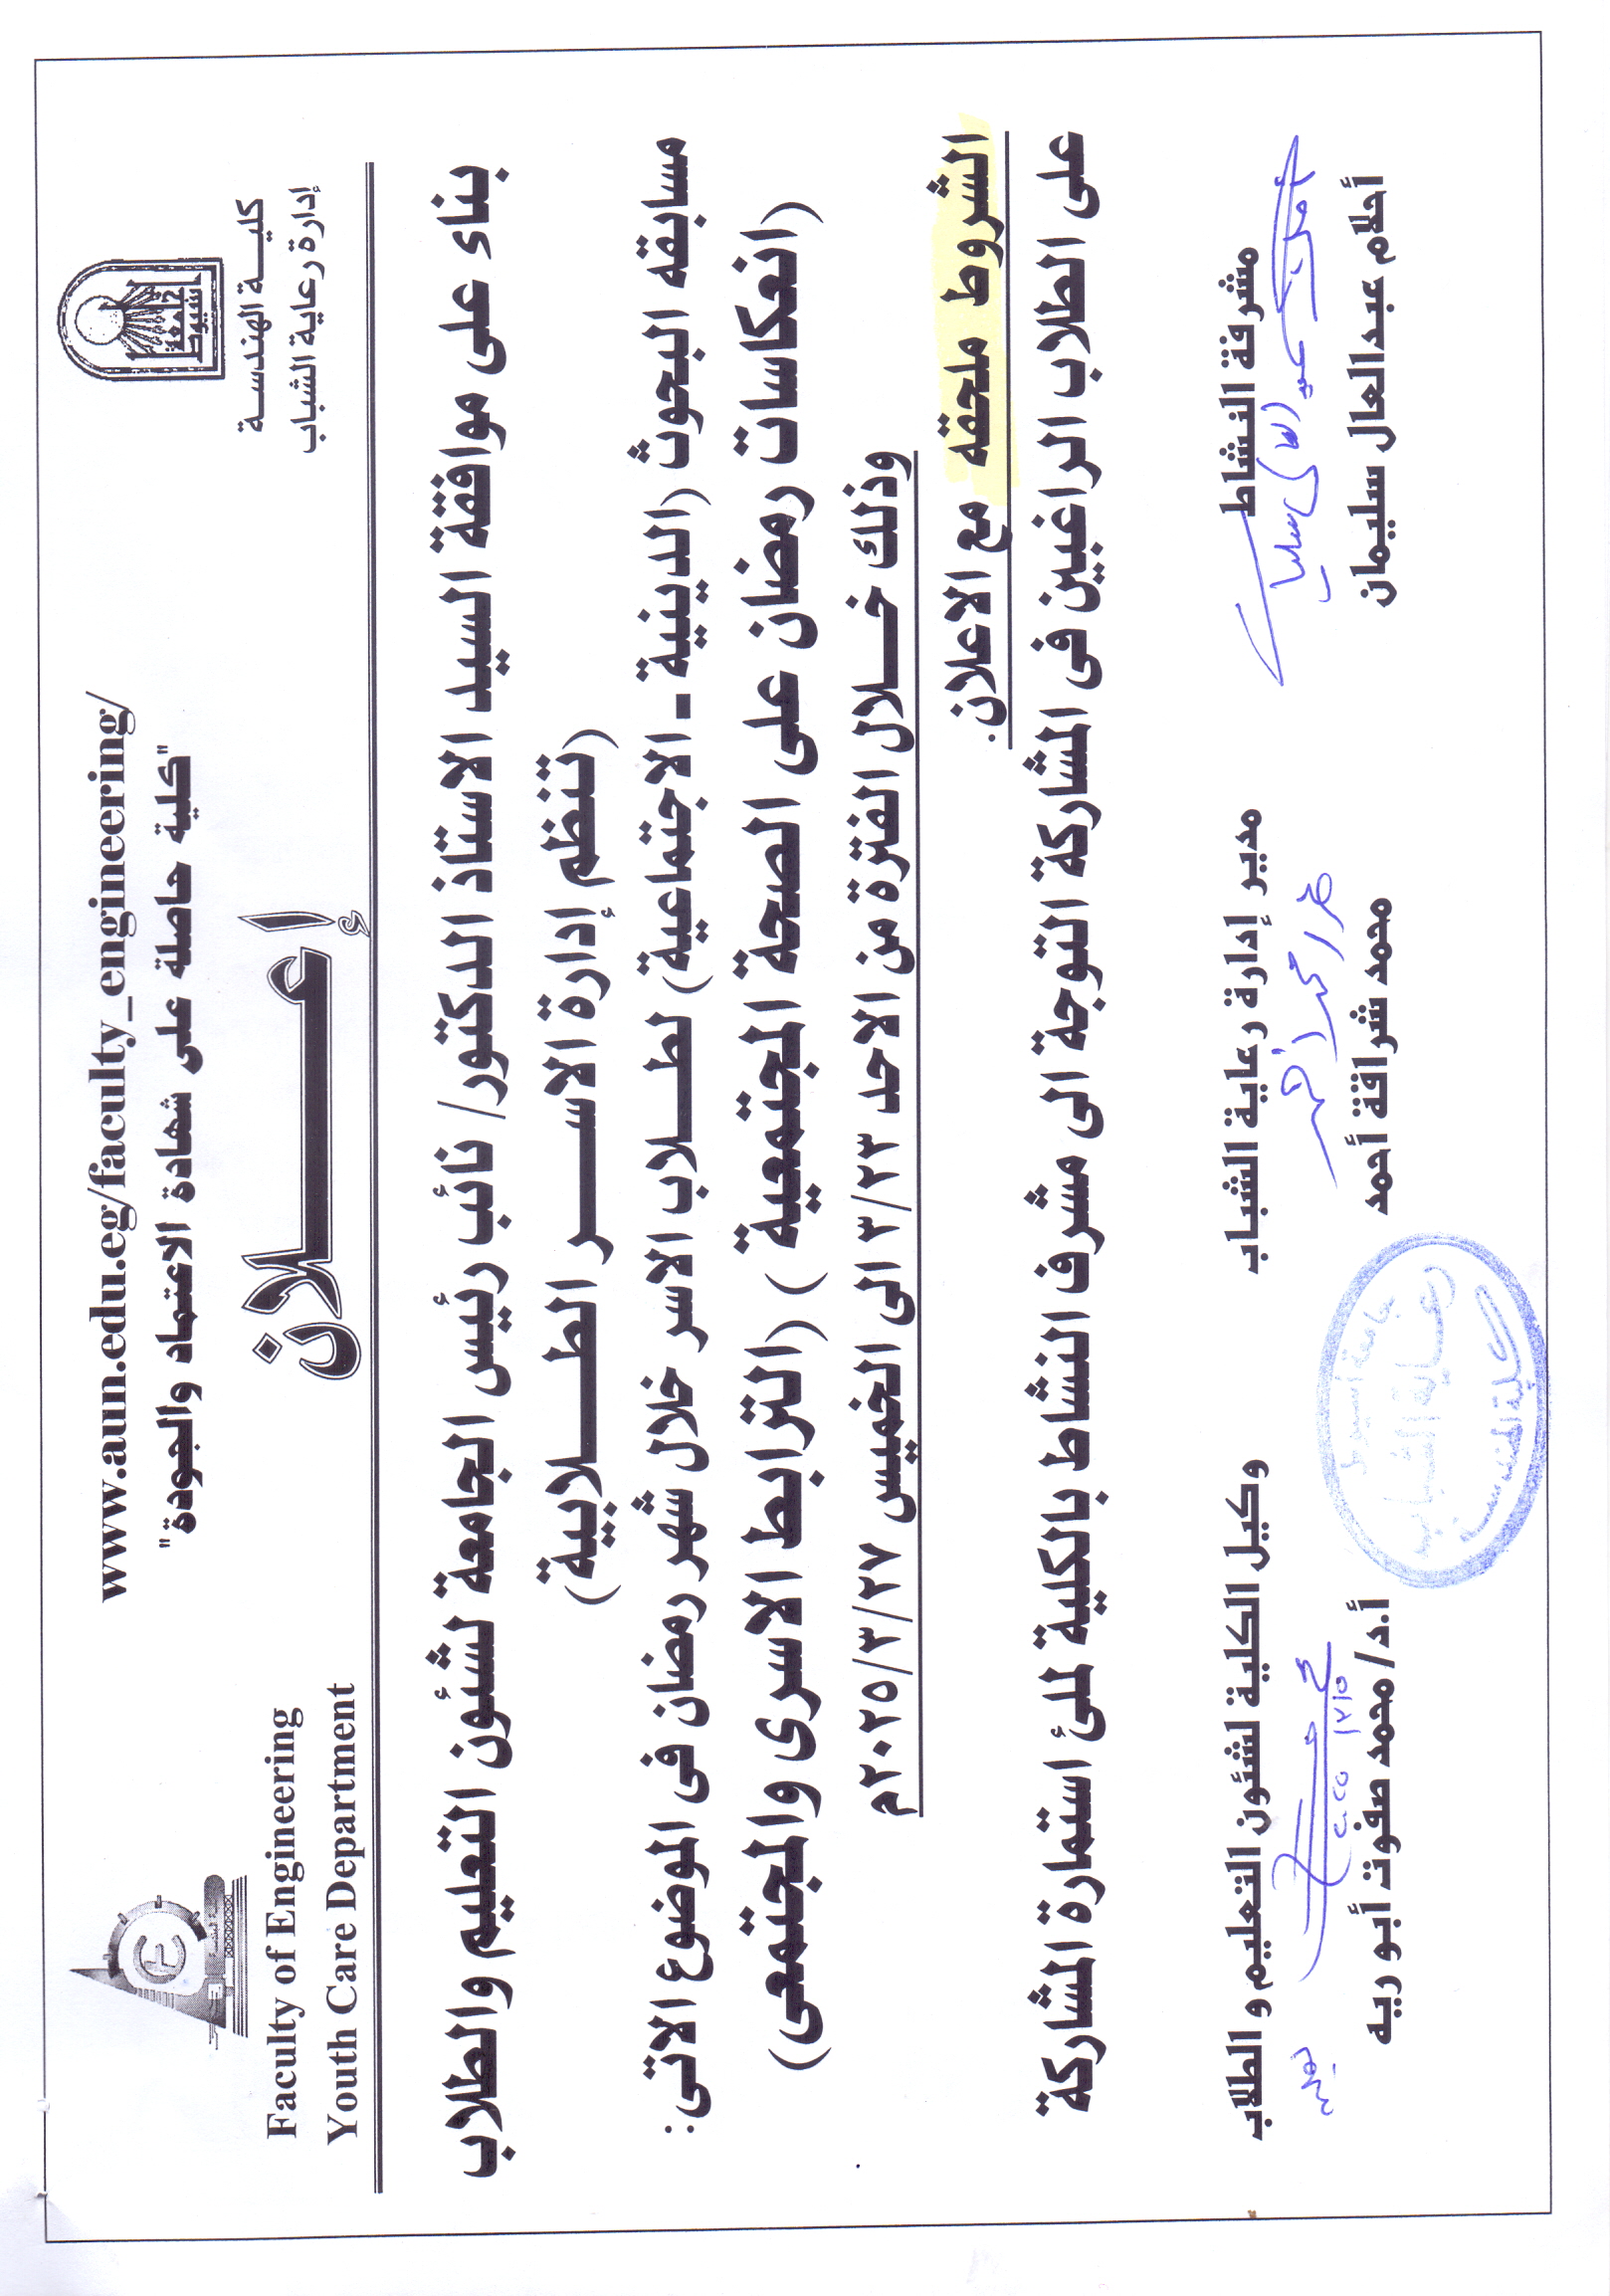 www.aun.edu.eg/faculty_engineering/
"كلية حاصلة على شهادة الاعتماد والجودة"
جامعة أسيوط
كليـــة الهندســـة
إدارة رعاية الشباب
Faculty of Engineering
Youth Care Department
إعـــلان
بناء على موافقة السيد الاستاذ الدكتور/ نائب رئيس الجامعة لشئون التعليم والطلاب
(تنظم إدارة الاســـر الطـــلابية)
مسابقه البحوث (الدينية - الاجتماعية) لطـــلاب الاسر خلال شهر رمضان فى الموضوع الاتى:
(انعكاسات رمضان على الصحة المجتمعية ) (الترابط الاسرى والمجتمعى)
وذلك خـــلال الفترة من الاحد ٣/٢٣ الى الخميس ٢٠٢٥/٣/٢٧م
الشروط ملحقه مع الاعلان.
على الطلاب الراغبين فى المشاركة التوجة الى مشرف النشاط بالكلية لملئ استمارة المشاركة
مشرفة النشاط
أحلام عبدالعال سليمان
أحلام عبدالعال سليمان
مدير إدارة رعاية الشباب
محمد شراقة أحمد
وكيل الكلية لشئون التعليم و الطلاب
أ.د/محمد صفوت أبو ريه
جامعة أسيوط
رعاية الشباب
كلية الهندسة